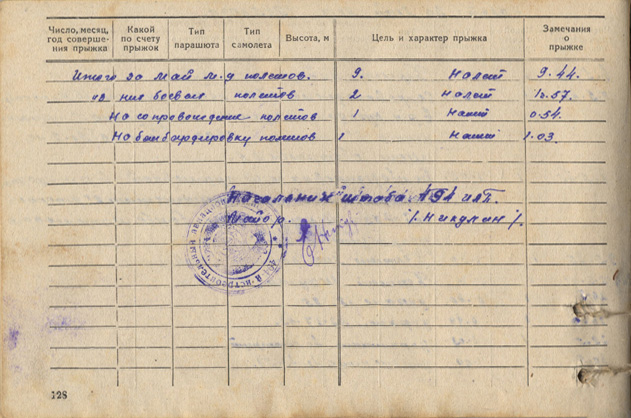 Число, месяц, год соверше-ния прыжка
Какой по счету прыжок
Тип парашюта
Тип самолета
Высота, м
Цель и характер прыжка
Замечания о прыжке
Итого за май м-ц полетов. 9. Налет 9.44.
из них боевых полетов 2 Налет 1.57.
На сопровождение полетов 1 Налет 0.54.
На бомбардировку полетов 1 Налет 1.03.
Начальник штаба ИАП.
Майор. /Никулин/.
128